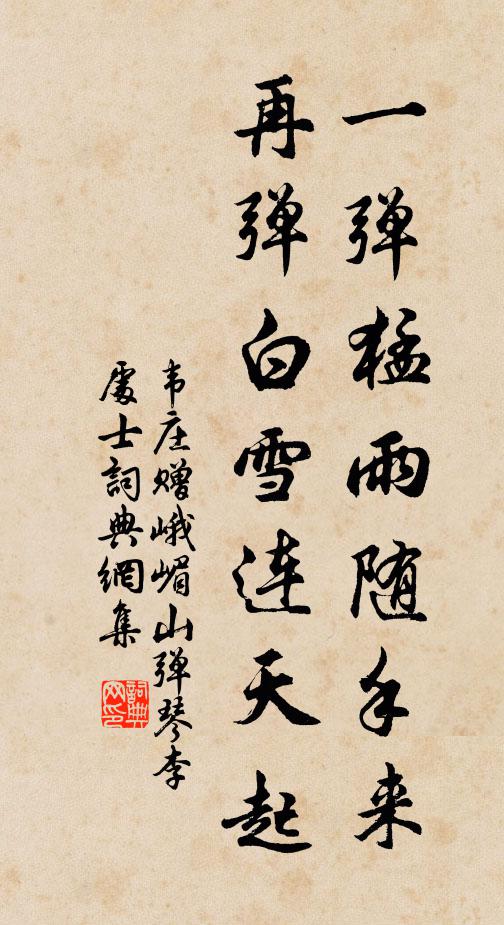 一弹猛雨随手来
再弹白雪连天起
韦庄赠峨嵋山弹琴李
處士詞典網集
詞典
网印